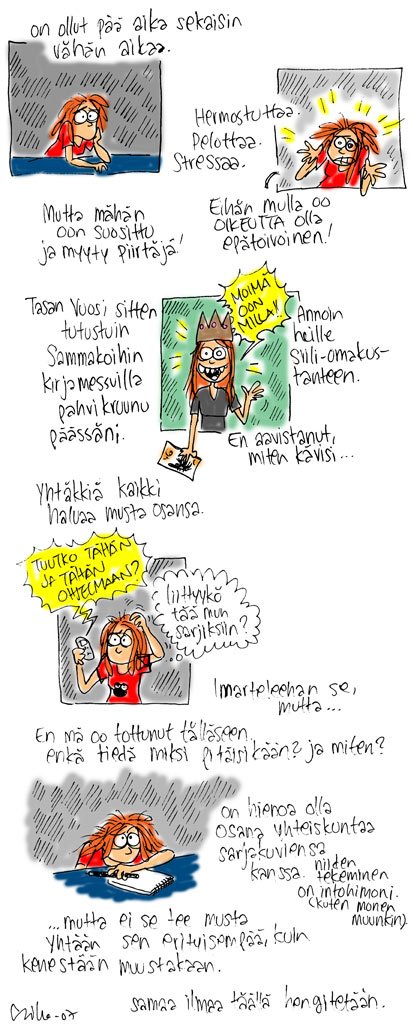 on ollut pää aika sekaisin
vähän aikaa.
Hermostuttaa.
Pelottaa.
Stressaa.
Mutta mähän
oon suosittu
ja myyty piirtäjä!
Eihän mulla oo
OIKEUTTA olla
epätoivoinen!
Tasan vuosi sitten
tutustuin
Sammakoihin
kirjamessuilla
pahvikruunu
päässäni.
MOIMÄ
OON
MILLA!!
Annoin
heille
Siili-omakus-
tanteen.
En aavistanut,
miten kävisi...
Yhtäkkiä kaikki
haluaa musta osansa.
TUUTKO TÄHÄN
JA TÄHÄN
OHJELMAAN?
liittyykö
tää mun
sarjiksiin?
Imarteleehan se,
mutta...
En mä oo tottunut tälläseen
enkä tiedä miksi pitäisikään? ja miten?
on hienoa olla
osana yhteiskuntaa
sarjakuviensa
kanssa. niiden
tekeminen
on intohimoni.
(kuten monen
muunkin).
...mutta ei se tee musta
yhtään sen erityisempää, kuin
kenestään muustakaan.
samaa ilmaa täällä hengitetään.
Milla -07